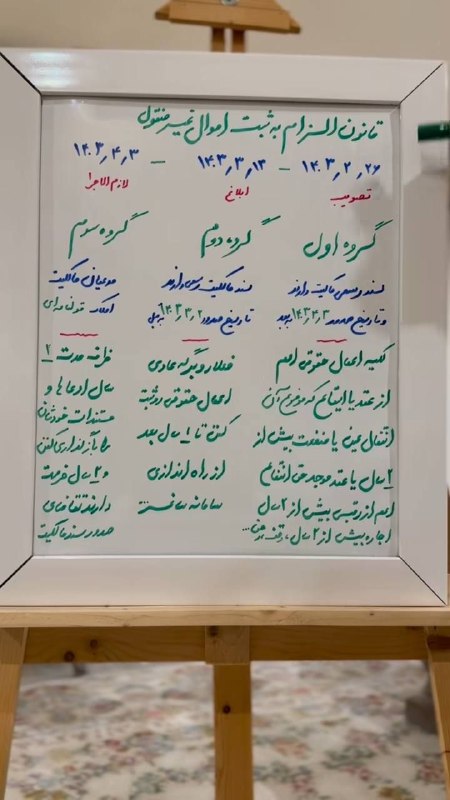 قانون الزام به ثبت اموال غیر منقول
۱۴۰۳٫۲٫۲۶ – ۱۴۰۳٫۳٫۱۳ – ۱۴۰۳٫۴٫۳
تصویب ابلاغ لازم الاجرا
گروه اول
سند رسمی مالکیت دارند
و تاریخ صدور ۱۴۰۳٫۴٫۳ به بعد
کلیه اعمال حقوقی اعم
از عقد یا ایقاع که موضوع آن
انتقال عین یا منفعت بیش از
۲ سال یا عقد موجد حق انتفاع
اعم از رقبی بیش از ۲ سال
اجاره بیش از ۲ سال
گروه دوم
سند مالکیت رسمی دارند
تاریخ صدور به قبل
فعلا روی برگه عادی
اعمال حقوقی رو ثبت
کنن تا ۱ سال بعد
از راه اندازی
سامانه
گروه سوم
مدعیان مالکیت
املاک قولنامه ای
ظرف مدت ۲
سال ادعاها و
مستندات خودشان
را بارگذاری کنن
و ۲ سال فرصت
دارند تقاضای
صدور سند مالکیت